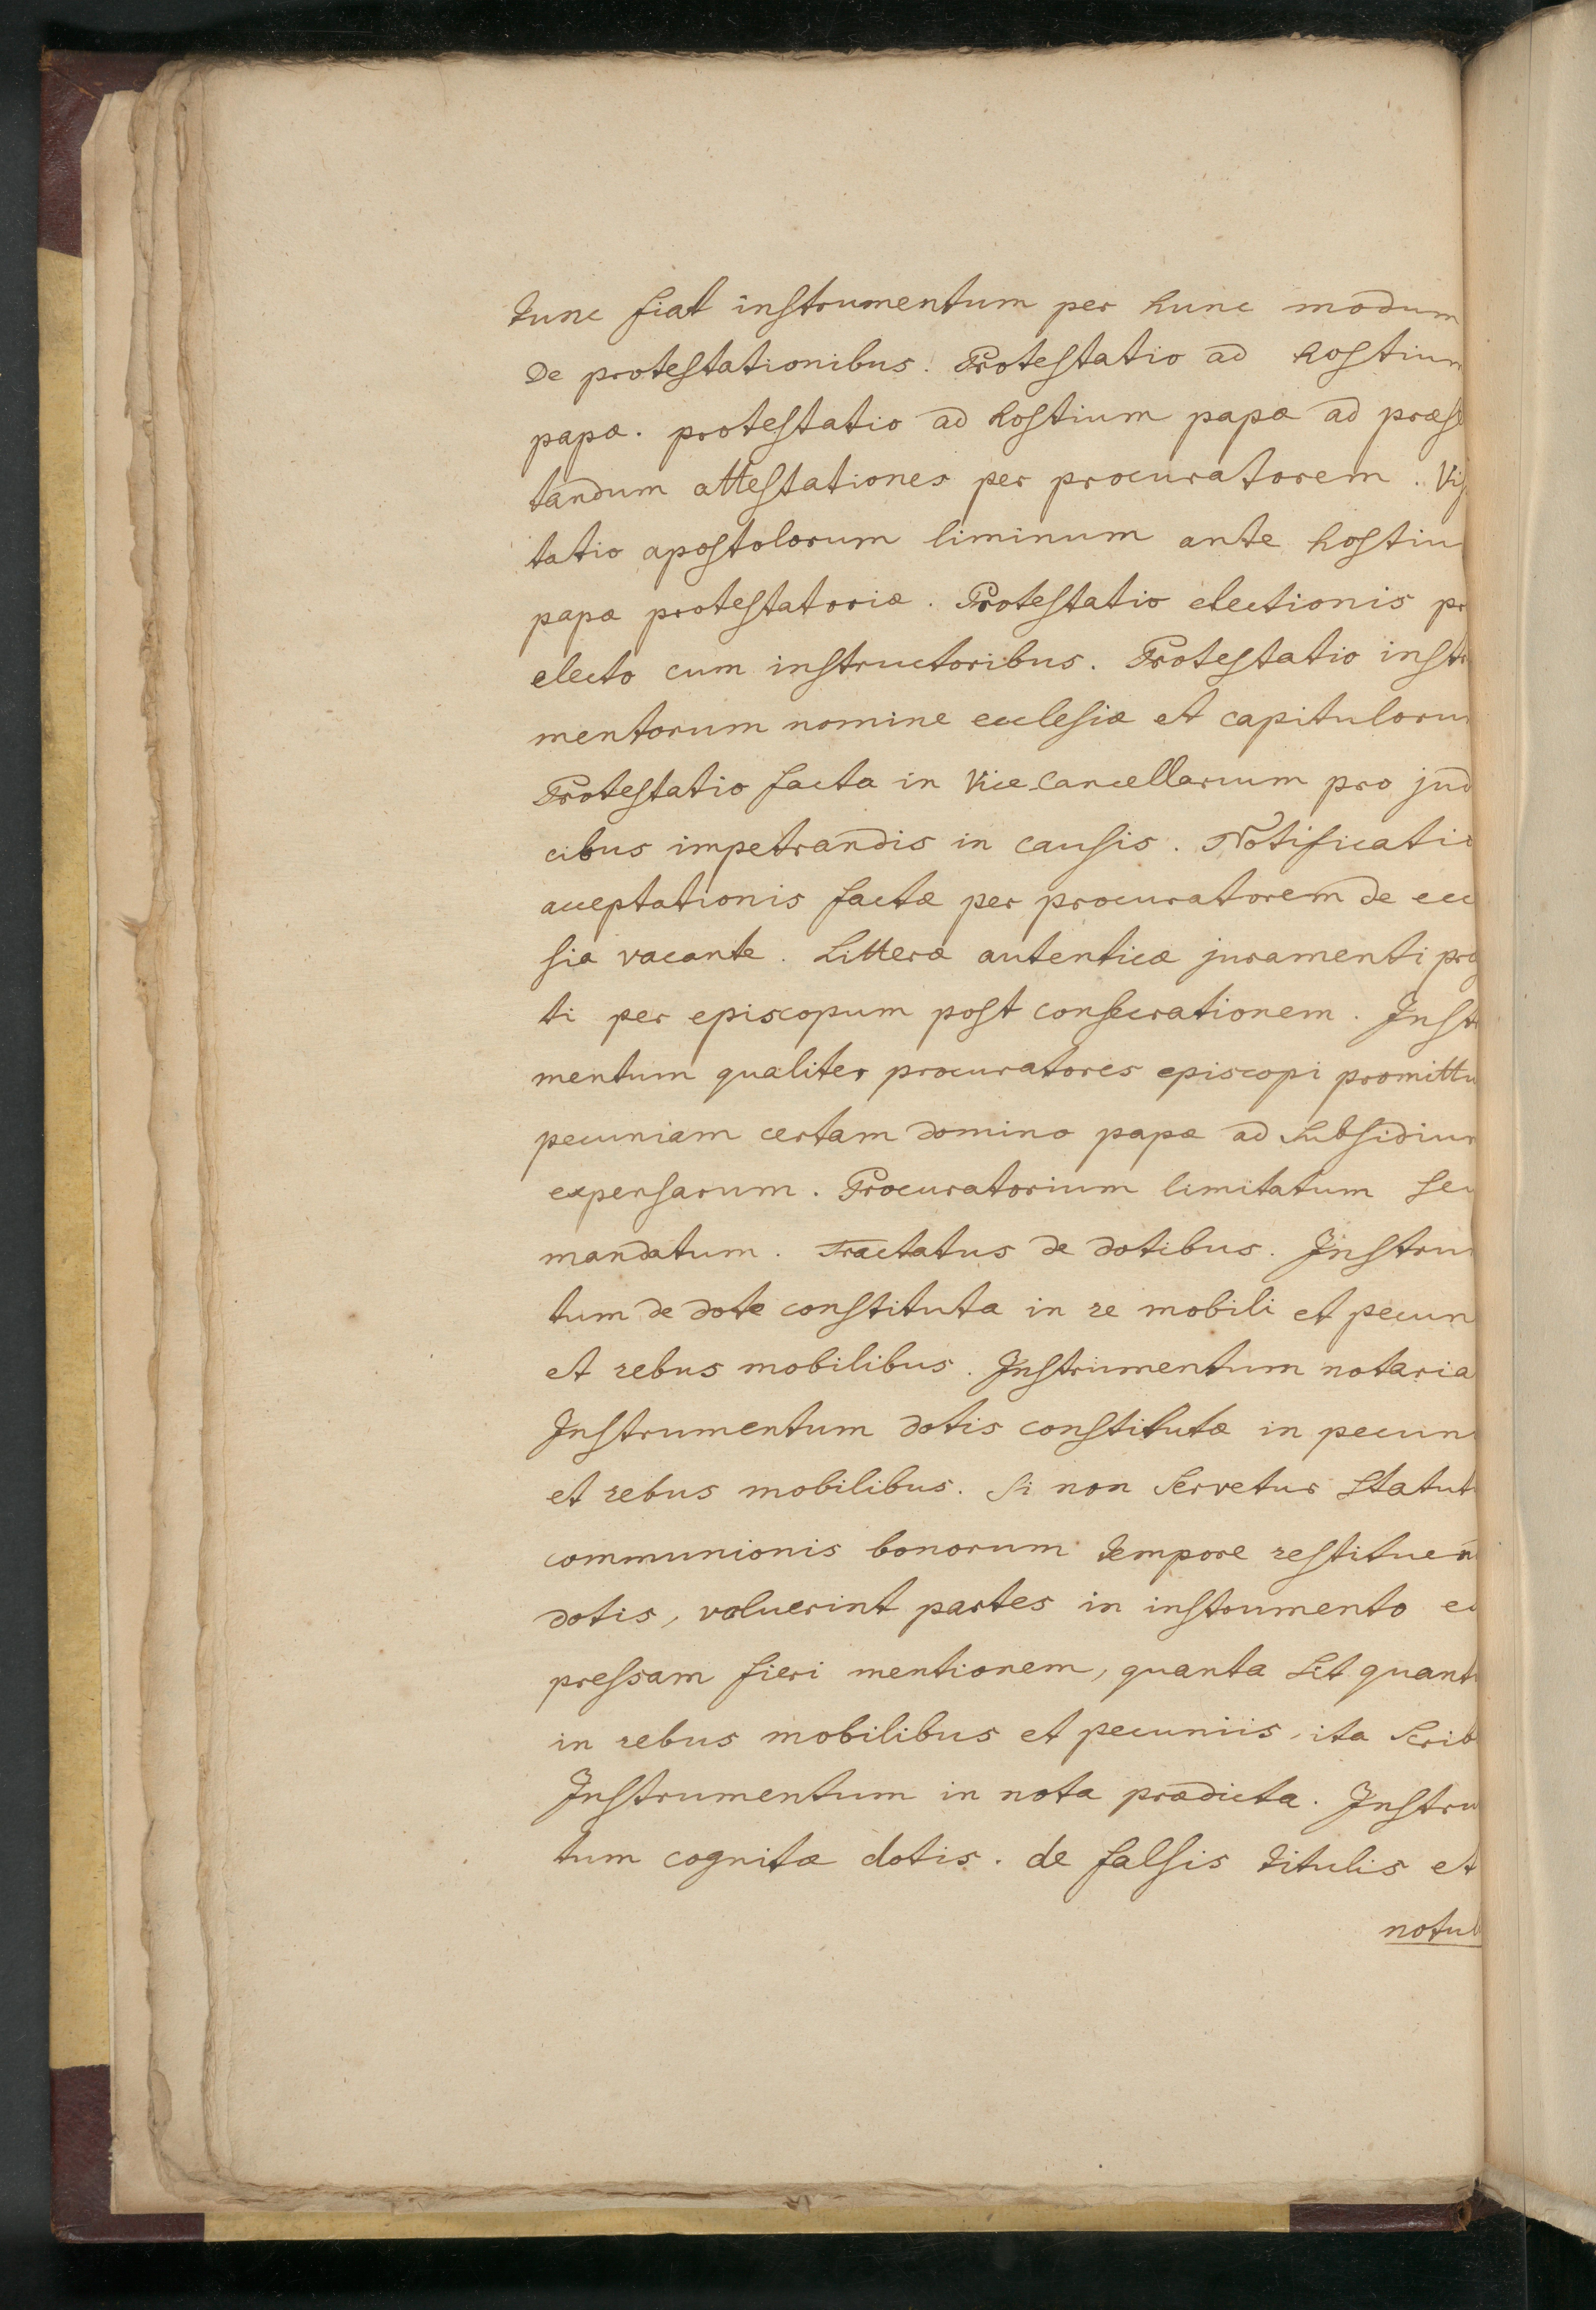 tunc fiat instrumentum per hunc modum
De protestationibus. Protestatio ad hostium
papæ. protestatio ad hostium papæ ad præse
tandum attestationes per procuratorem. Vis
tatio apostolorum liminum ante hostiu
papæ protestatoriæ. Protestatio electionis pr
electo cum instructoribus. Protestatio instr
mentorum nomine ecclesiæ et capituloru
Protestatio facta in Vice-Cancellarium pro jud
cibus impetrandis in causis. Notificatio
acceptationis factæ per procuratorem de ecc
sia vacante. Litteræ autenticæ juramenti præ
ti per episcopum post consecrationem. Instr
mentum qualiter procuratores episcopi promittu
pecuniam certam domino papæ ad subsidium
expensarum. Procuratorium limitatum seu
mandatum. Tractatus de dotibus. Instru
tum de dote constituta in re mobili et pecun
et rebus mobilibus. Instrumentum notaria
Instrumentum dotis constitutæ in pecun
et rebus mobilibus. Si non servetur statut
communionis bonorum tempore restituen
dotis, voluerint partes in instrumento ex
pressam fieri mentionem, quanta sit quant
in rebus mobilibus et pecuniis, ita scrib
Instrumentum in nota prædicta. Instru
tum cognitæ dotis. de falsis titulis et
notul